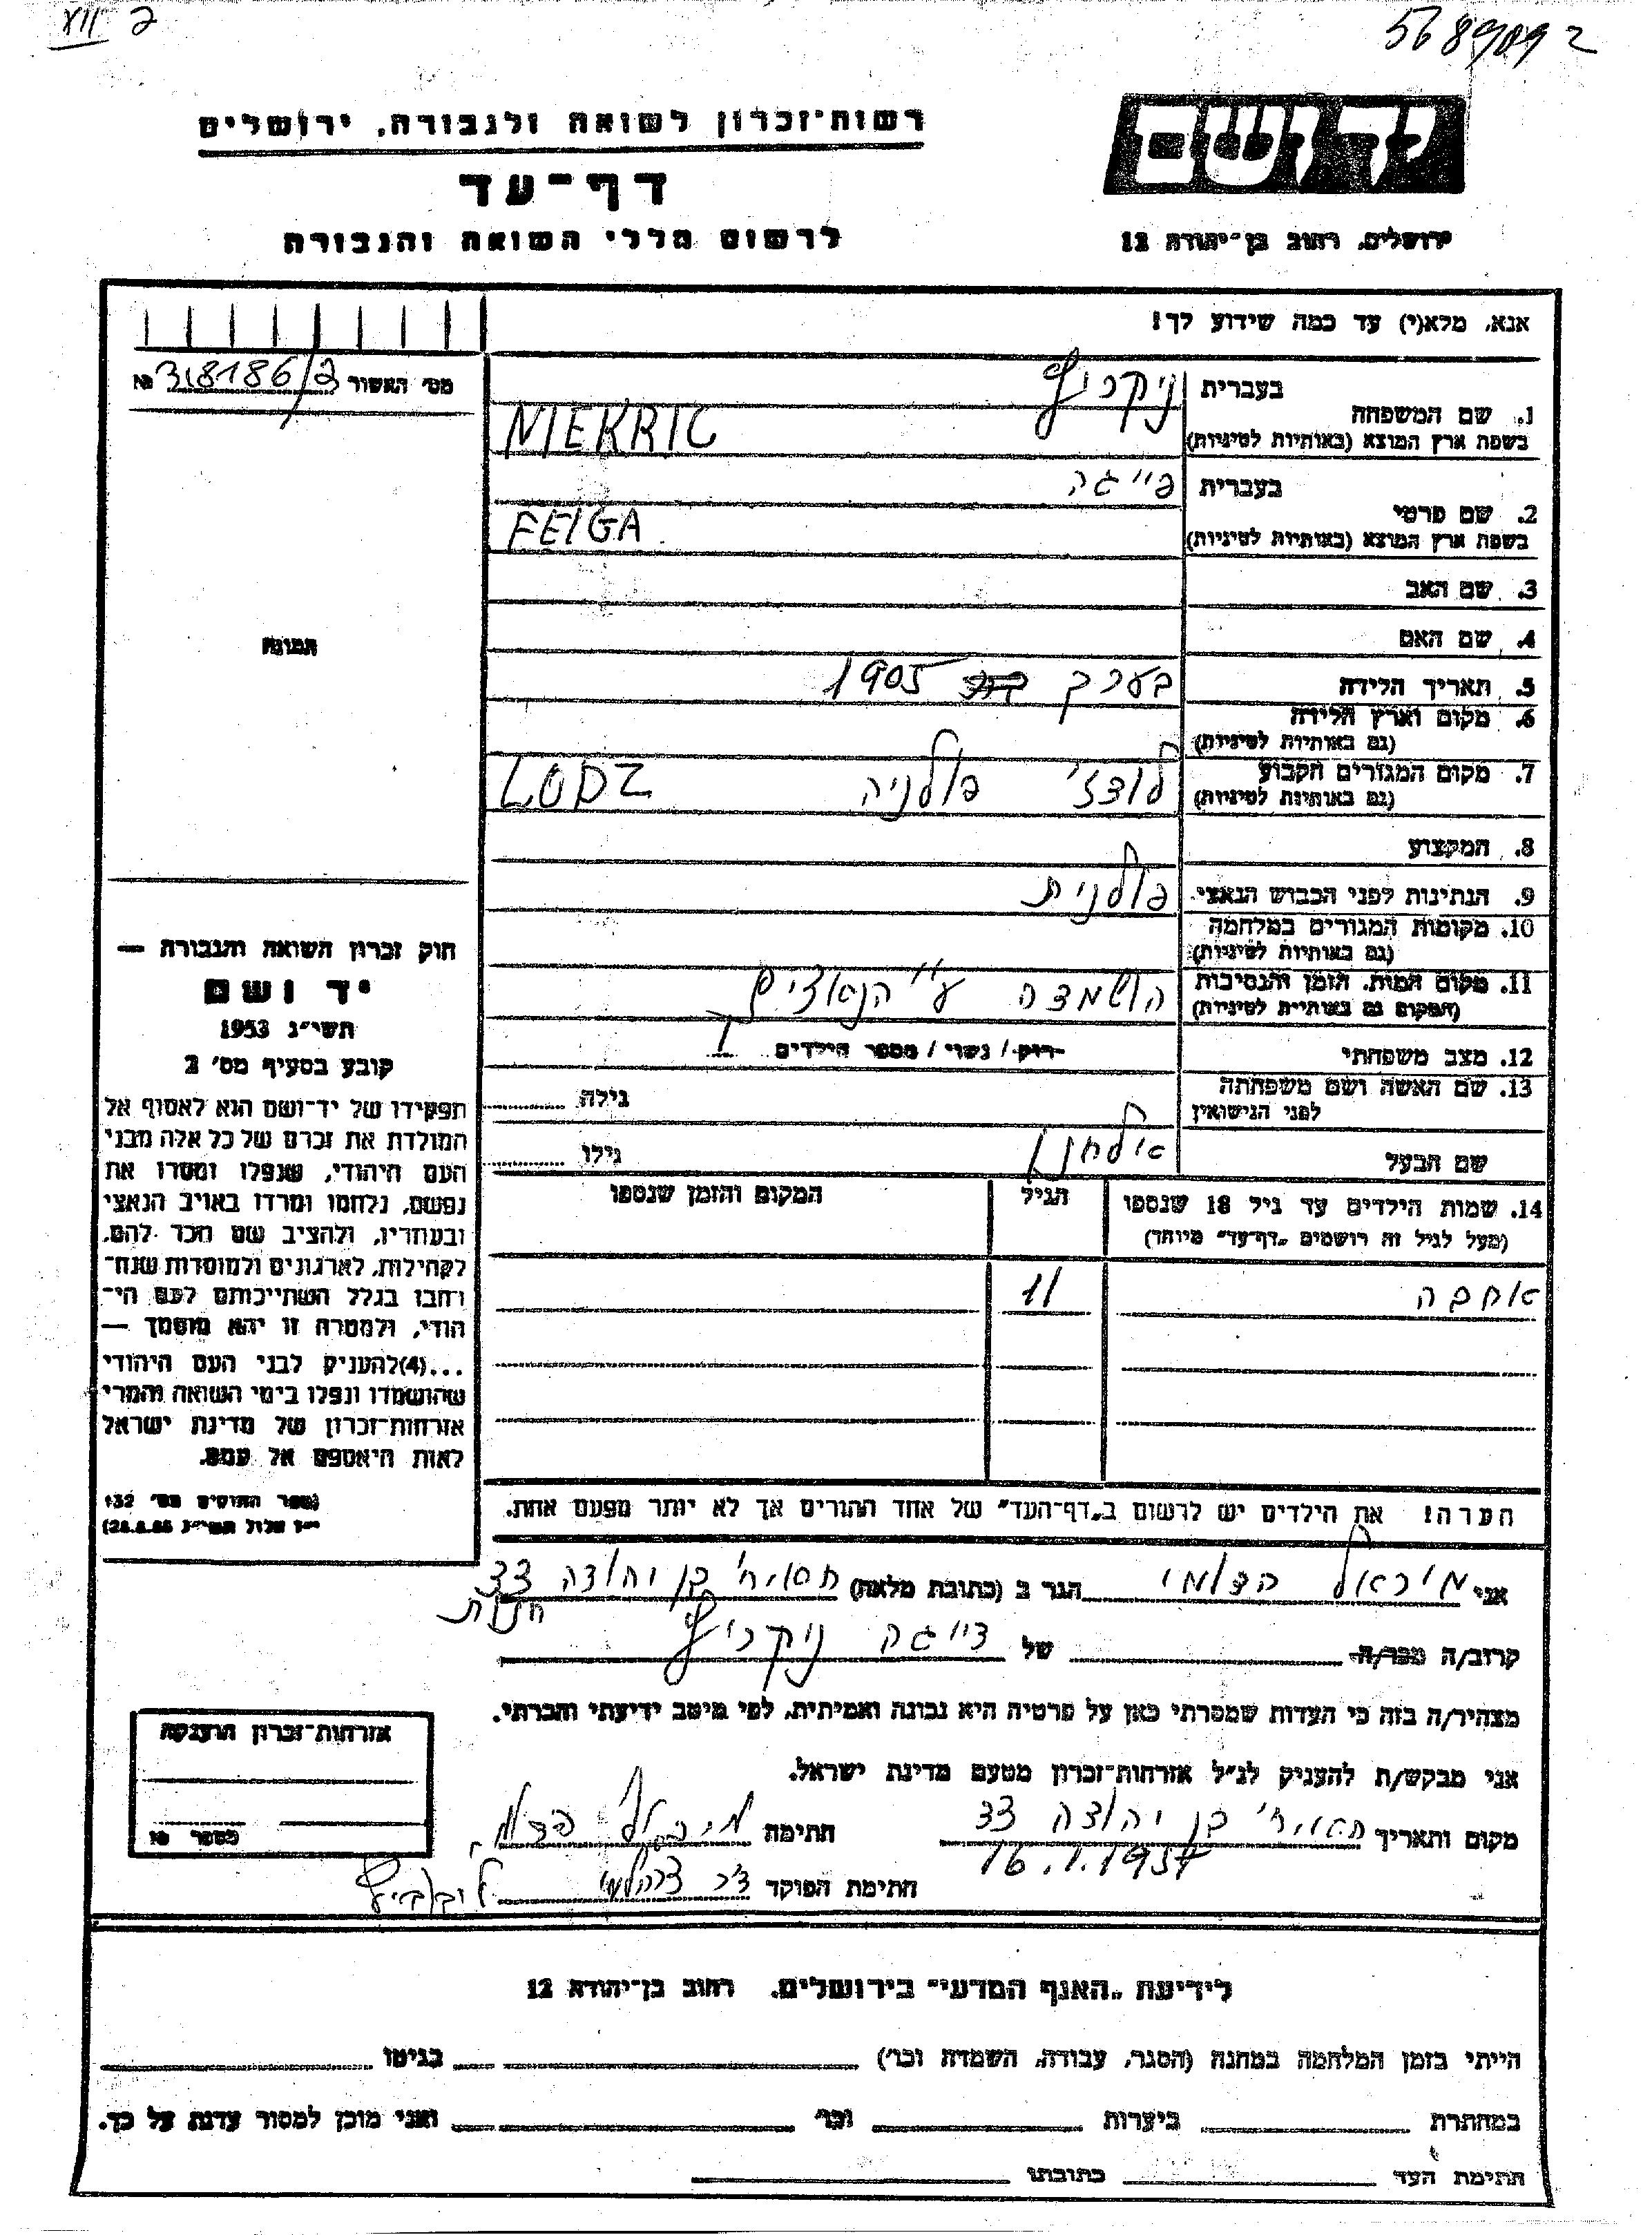 XVII 2
56 89092
יד ושם
רשות־זכרון לשואה ולגבורה, ירושלים
דף־עד
לרשום חללי השואה והגבורה
ירושלים, רחוב בן־יהודה 12
אנא, מלא(י) עד כמה שידוע לך!
מס׳ האשור 38186/2 №
בעברית
1. שם המשפחה
בשפת ארץ המוצא (באותיות לטיניות)
NIEKRIC
בעברית פייגה
2. שם פרטי
בשפת ארץ המוצא (באותיות לטיניות)
FEIGA
3. שם האב
4. שם האם
תמונה
5. תאריך הלידה בערך 1905
6. מקום וארץ הלידה
(גם באותיות לטיניות)
7. מקום המגורים הקבוע לודז׳ פולניה LODZ
(גם באותיות לטיניות)
8. המקצוע
9. הנתינות לפני הכבוש הנאצי פולנית
10. מקומות המגורים במלחמה
(גם באותיות לטיניות)
11. מקום המות, הזמן והנסיבות הושמדה ע״י הנאצים
(המקום גם באותיות לטיניות)
12. מצב משפחתי רווק / נשוי / מספר הילדים 1
13. שם האשה ושם משפחתה
לפני הנישואין
גילה
שם הבעל אלחנן גילו
14. שמות הילדים עד גיל 18 שנספו
(מעל לגיל זה רושמים „דף־עד״ מיוחד)
הגיל
המקום והזמן שנספו
11
הערה! את הילדים יש לרשום ב„דף־העד״ של אחד ההורים אך לא יותר מפעם אחת.
חוק זכרון השואה והגבורה —
יד ושם
תשי״ג 1953
קובע בסעיף מס׳ 2
תפקידו של יד־ושם הוא לאסוף אל
המולדת את זכרם של כל אלה מבני
העם היהודי, שנפלו ומסרו את
נפשם, נלחמו ומרדו באויב הנאצי
ובעוזריו, ולהציב שם וזכר להם,
לקהילות, לארגונים ולמוסדות שנח־
רבו בגלל השתייכותם לעם הי־
הודי, ולמטרה זו יהא מוסמך —
...(4)להעניק לבני העם היהודי
שהושמדו ונפלו בימי השואה והמרי
אזרחות־זכרון של מדינת ישראל
לאות היאספם אל עמם.
(ספר החוקים מס׳ 132
אני הגר ב (כתובת מלאה) בן יהודה 33
חנות
קרוב/ה מכר/ה של
מצהיר/ה בזה כי העדות שמסרתי כאן על פרטיה היא נכונה ואמיתית, לפי מיטב ידיעתי והכרתי.
אני מבקש/ת להעניק לנ״ל אזרחות־זכרון מטעם מדינת ישראל.
מקום ותאריך בן יהודה 33 חתימה
16.1.1957
חתימת הפוקד
אזרחות־זכרון הוענקה
מספר №
לידיעת „האגף המדעי״ בירושלים, רחוב בן־יהודה 12
הייתי בזמן המלחמה במחנה (הסגר, עבודה, השמדה וכו׳) בגיטו
במחתרת ביערות וכו׳ ואני מוכן למסור עדות על כך.
חתימת העד כתובתו